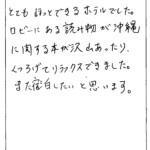 とても ほっとできる ホテルでした。
ロビーに ある 読み物が 沖縄
に関する本が沢山あったり、
くつろげてリラックスできました。
また宿泊したいと思います。